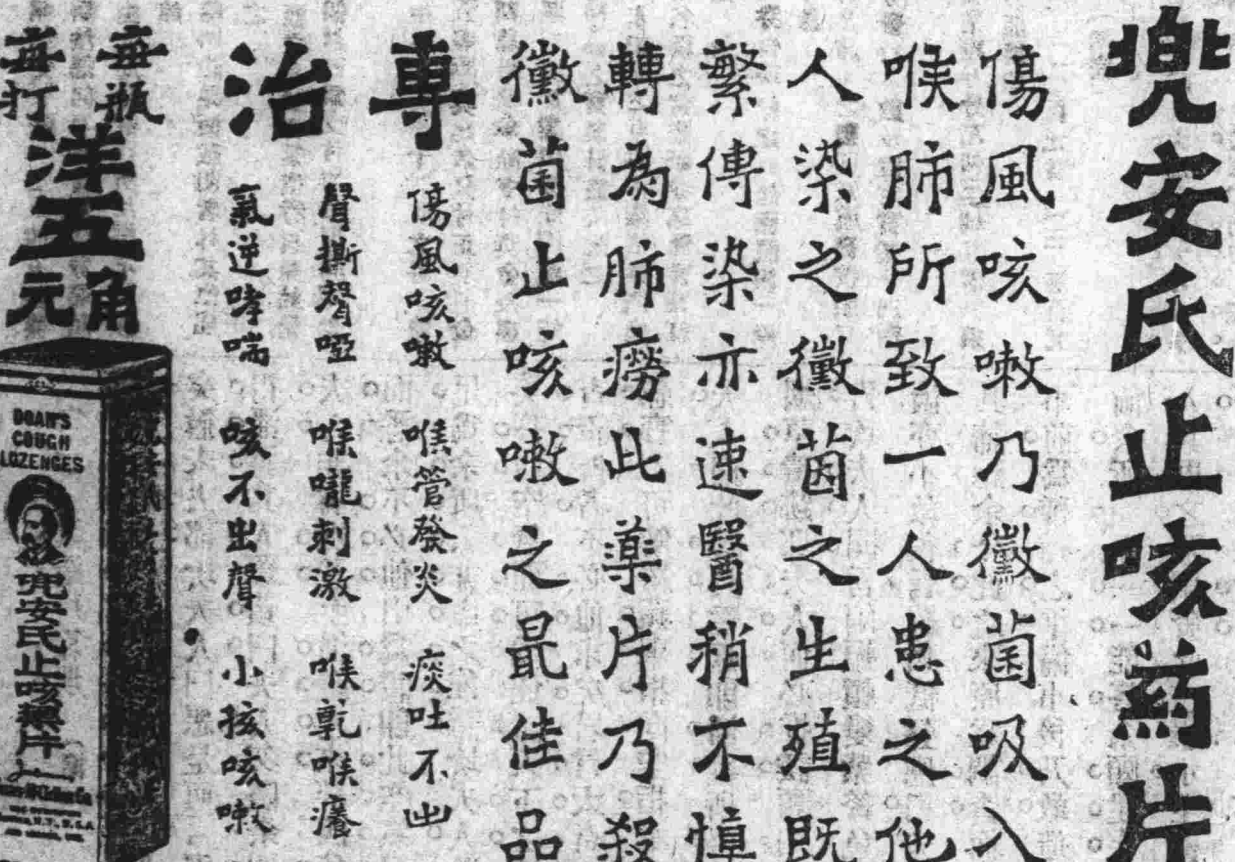 兜安氏止咳葯片
傷風咳嗽乃黴菌吸入
喉肺所致一人患之他
人染之黴菌之生殖既
繁傳染亦速醫稍不慎
轉為肺癆此藥片乃殺
黴菌止咳嗽之最佳品
專治
傷風咳嗽 喉管發炎 痰吐不出
聲撕聲啞 喉嚨刺激 喉乾喉癢
氣逆哮喘 咳不出聲 小孩咳嗽
每瓶
每打
洋五
角
元
DOAN'S
COUGH
LOZENGES
兜安氏止咳藥片